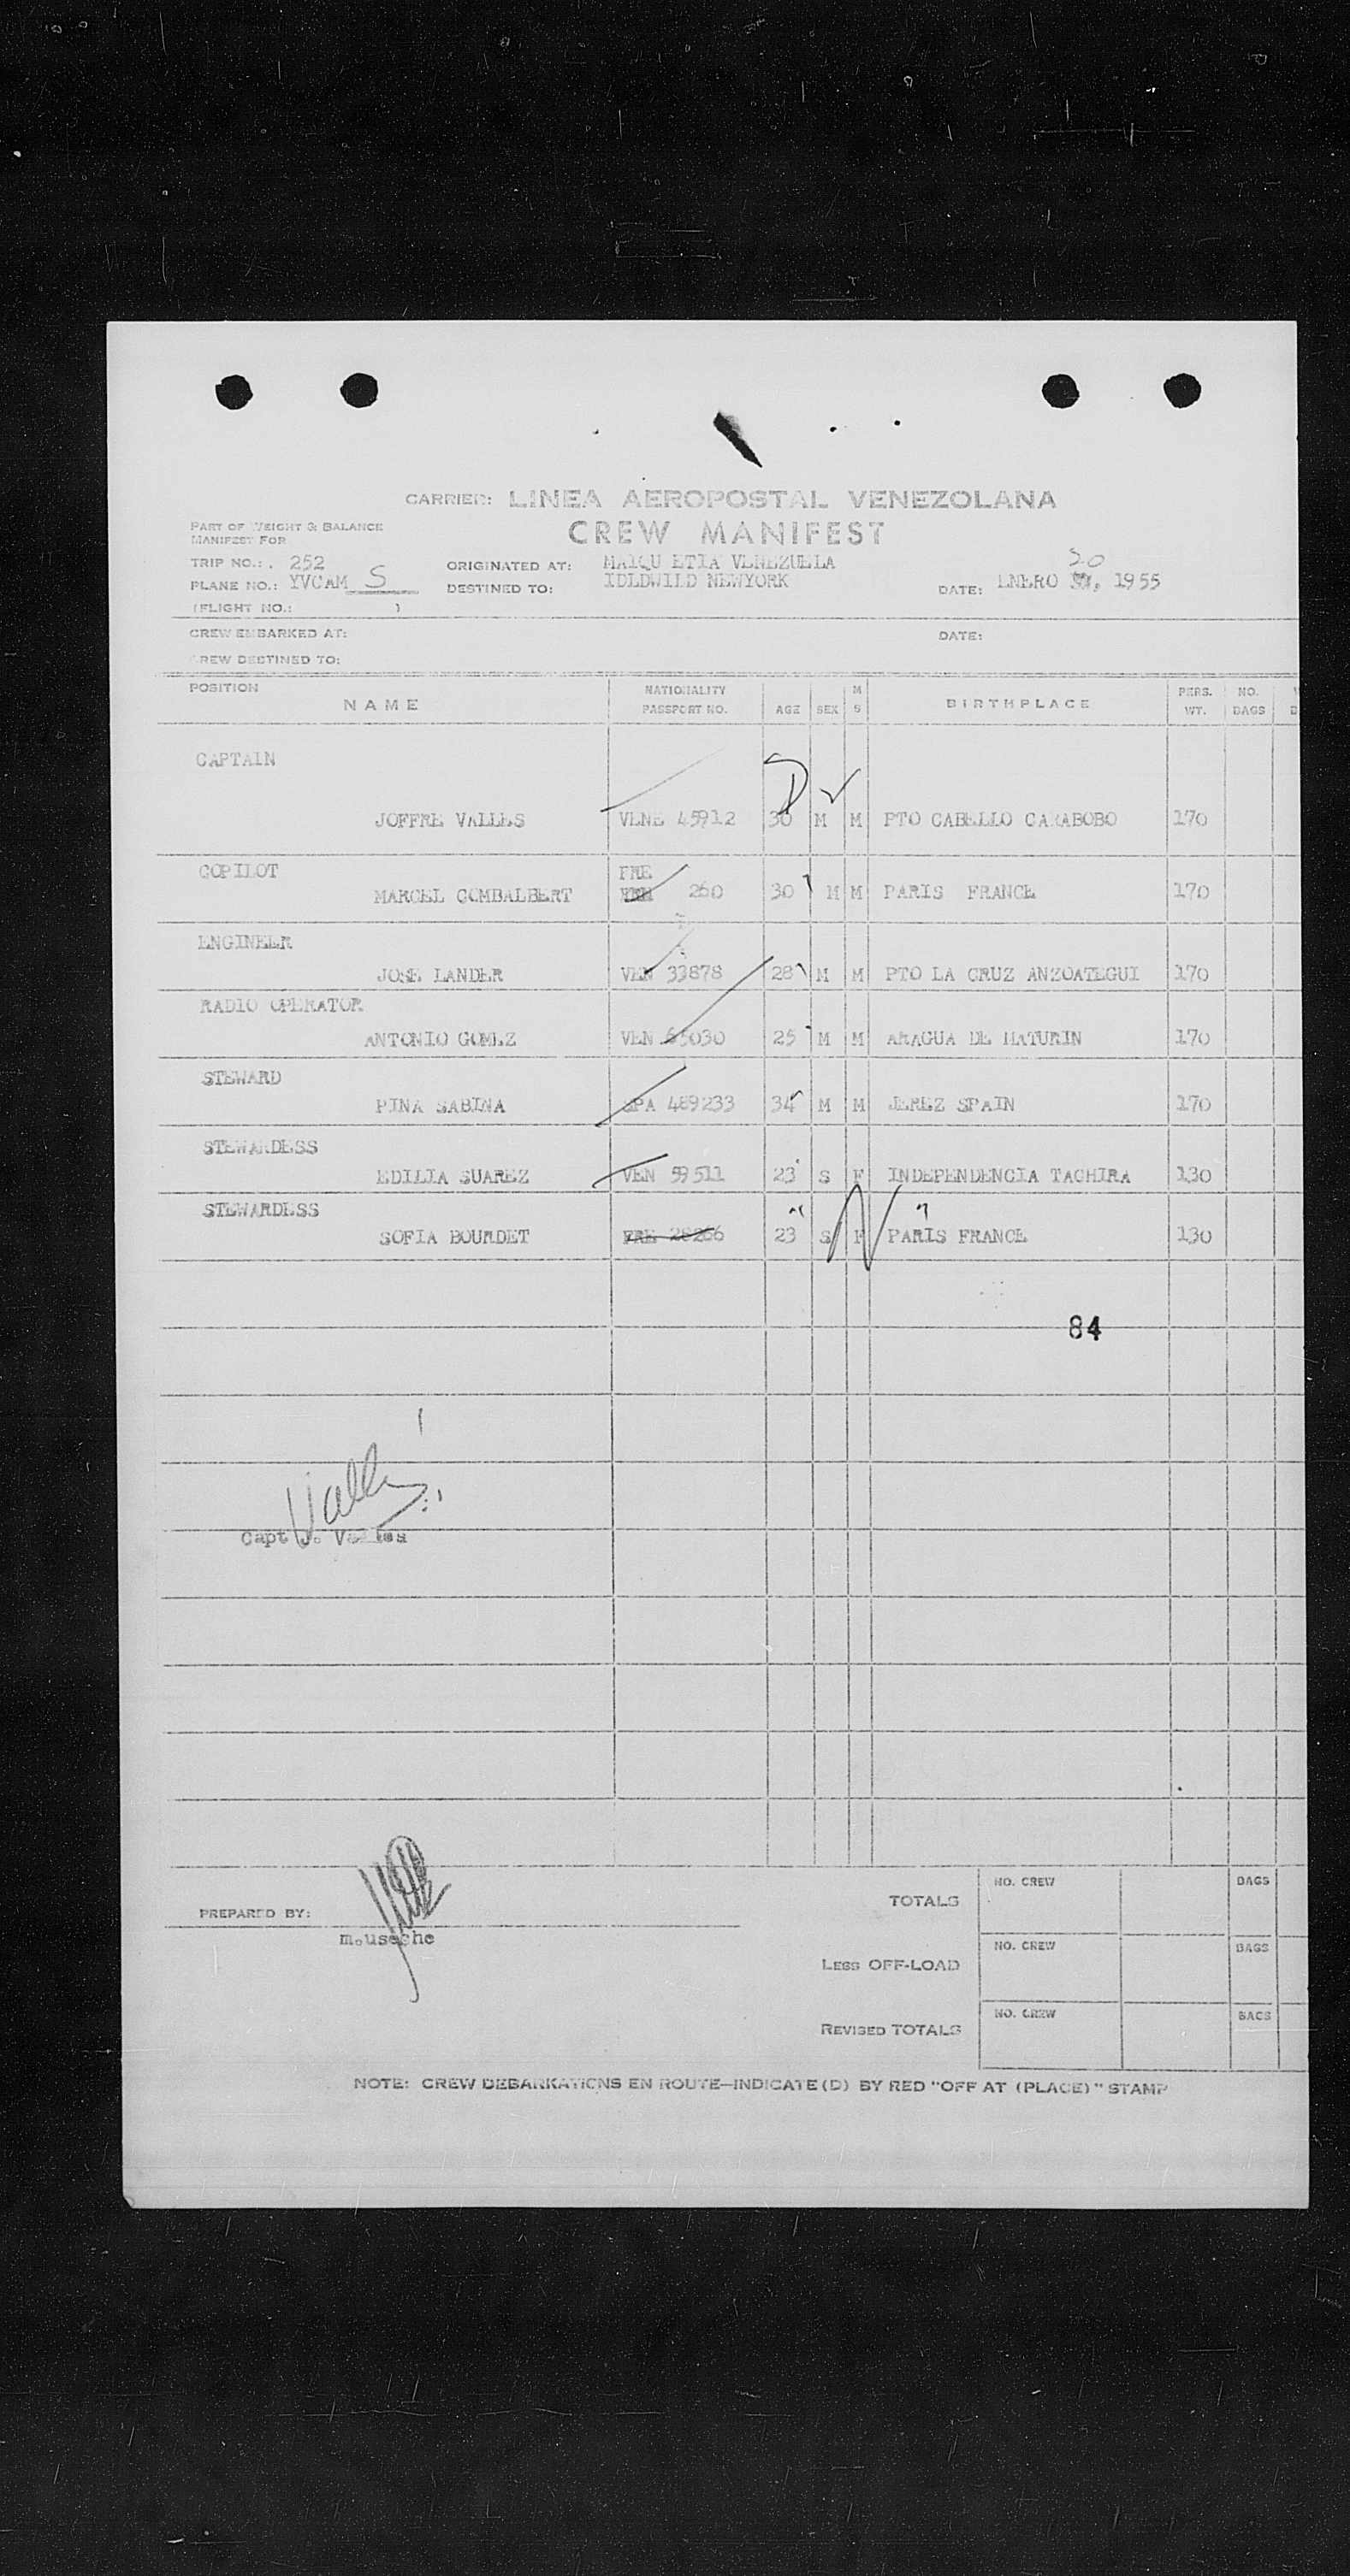 CARRIER: LINEA AEROPOSTAL VENEZOLANA
PART OF WEIGHT & BALANCE
MANIFEST FOR
CREW MANIFEST
TRIP NO.: . 252
ORIGINATED AT: MAIQU ETIA VENEZUELA
20
PLANE NO.: YVCAM S
DESTINED TO: IDLDWILD NEWYORK
DATE: ENERO , 1955
(FLIGHT NO.: )
CREW EMBARKED AT:
DATE:
CREW DESTINED TO:
POSITION
NAME
NATIONALITY
PASSPORT NO.
AGE
SEX
M
S
BIRTHPLACE
PERS.
WT.
NO.
BAGS
CAPTAIN
JOFFRE VALLES VENE 45912 30 M M PTO CABELLO CARABOBO 170
COPILOT
FRE
MARCEL COMBALBERT 260 30 M M PARIS FRANCE 170
ENGINEER
JOSE LANDER VEN 33878 28 M M PTO LA CRUZ ANZOATEGUI 170
RADIO OPERATOR
ANTONIO GOMEZ VEN 65030 25 M M ARAGUA DE MATURIN 170
STEWARD
PINA SABINA SPA 489233 34 M M JEREZ SPAIN 170
STEWARDESS
EDILIA SUAREZ VEN 59511 23 S F INDEPENDENCIA TACHIRA 130
STEWARDESS
SOFIA BOURDET FRE 28266 23 S F PARIS FRANCE 130
84
Valles
Capt J. Valles
PREPARED BY:
m.useche
TOTALS NO. CREW BAGS
LESS OFF-LOAD NO. CREW BAGS
REVISED TOTALS NO. CREW BAGS
NOTE: CREW DEBARKATIONS EN ROUTE—INDICATE (D) BY RED "OFF AT (PLACE)" STAMP